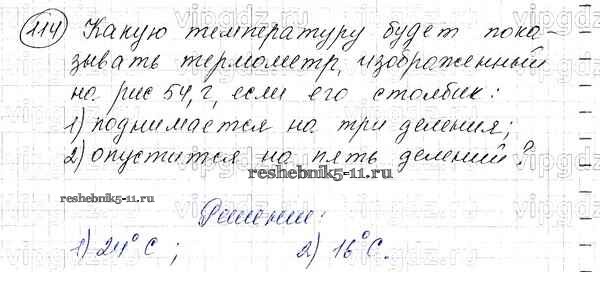 114 Какую температуру будет пока-
зывать термометр, изображенный
на рис 54, г, если его столбик:
1) поднимается на три деления;
2) опустится на пять делений?
reshebnik5-11.ru
reshebnik5-11.ru
Решение:
1) 24°С; 2) 16°С.